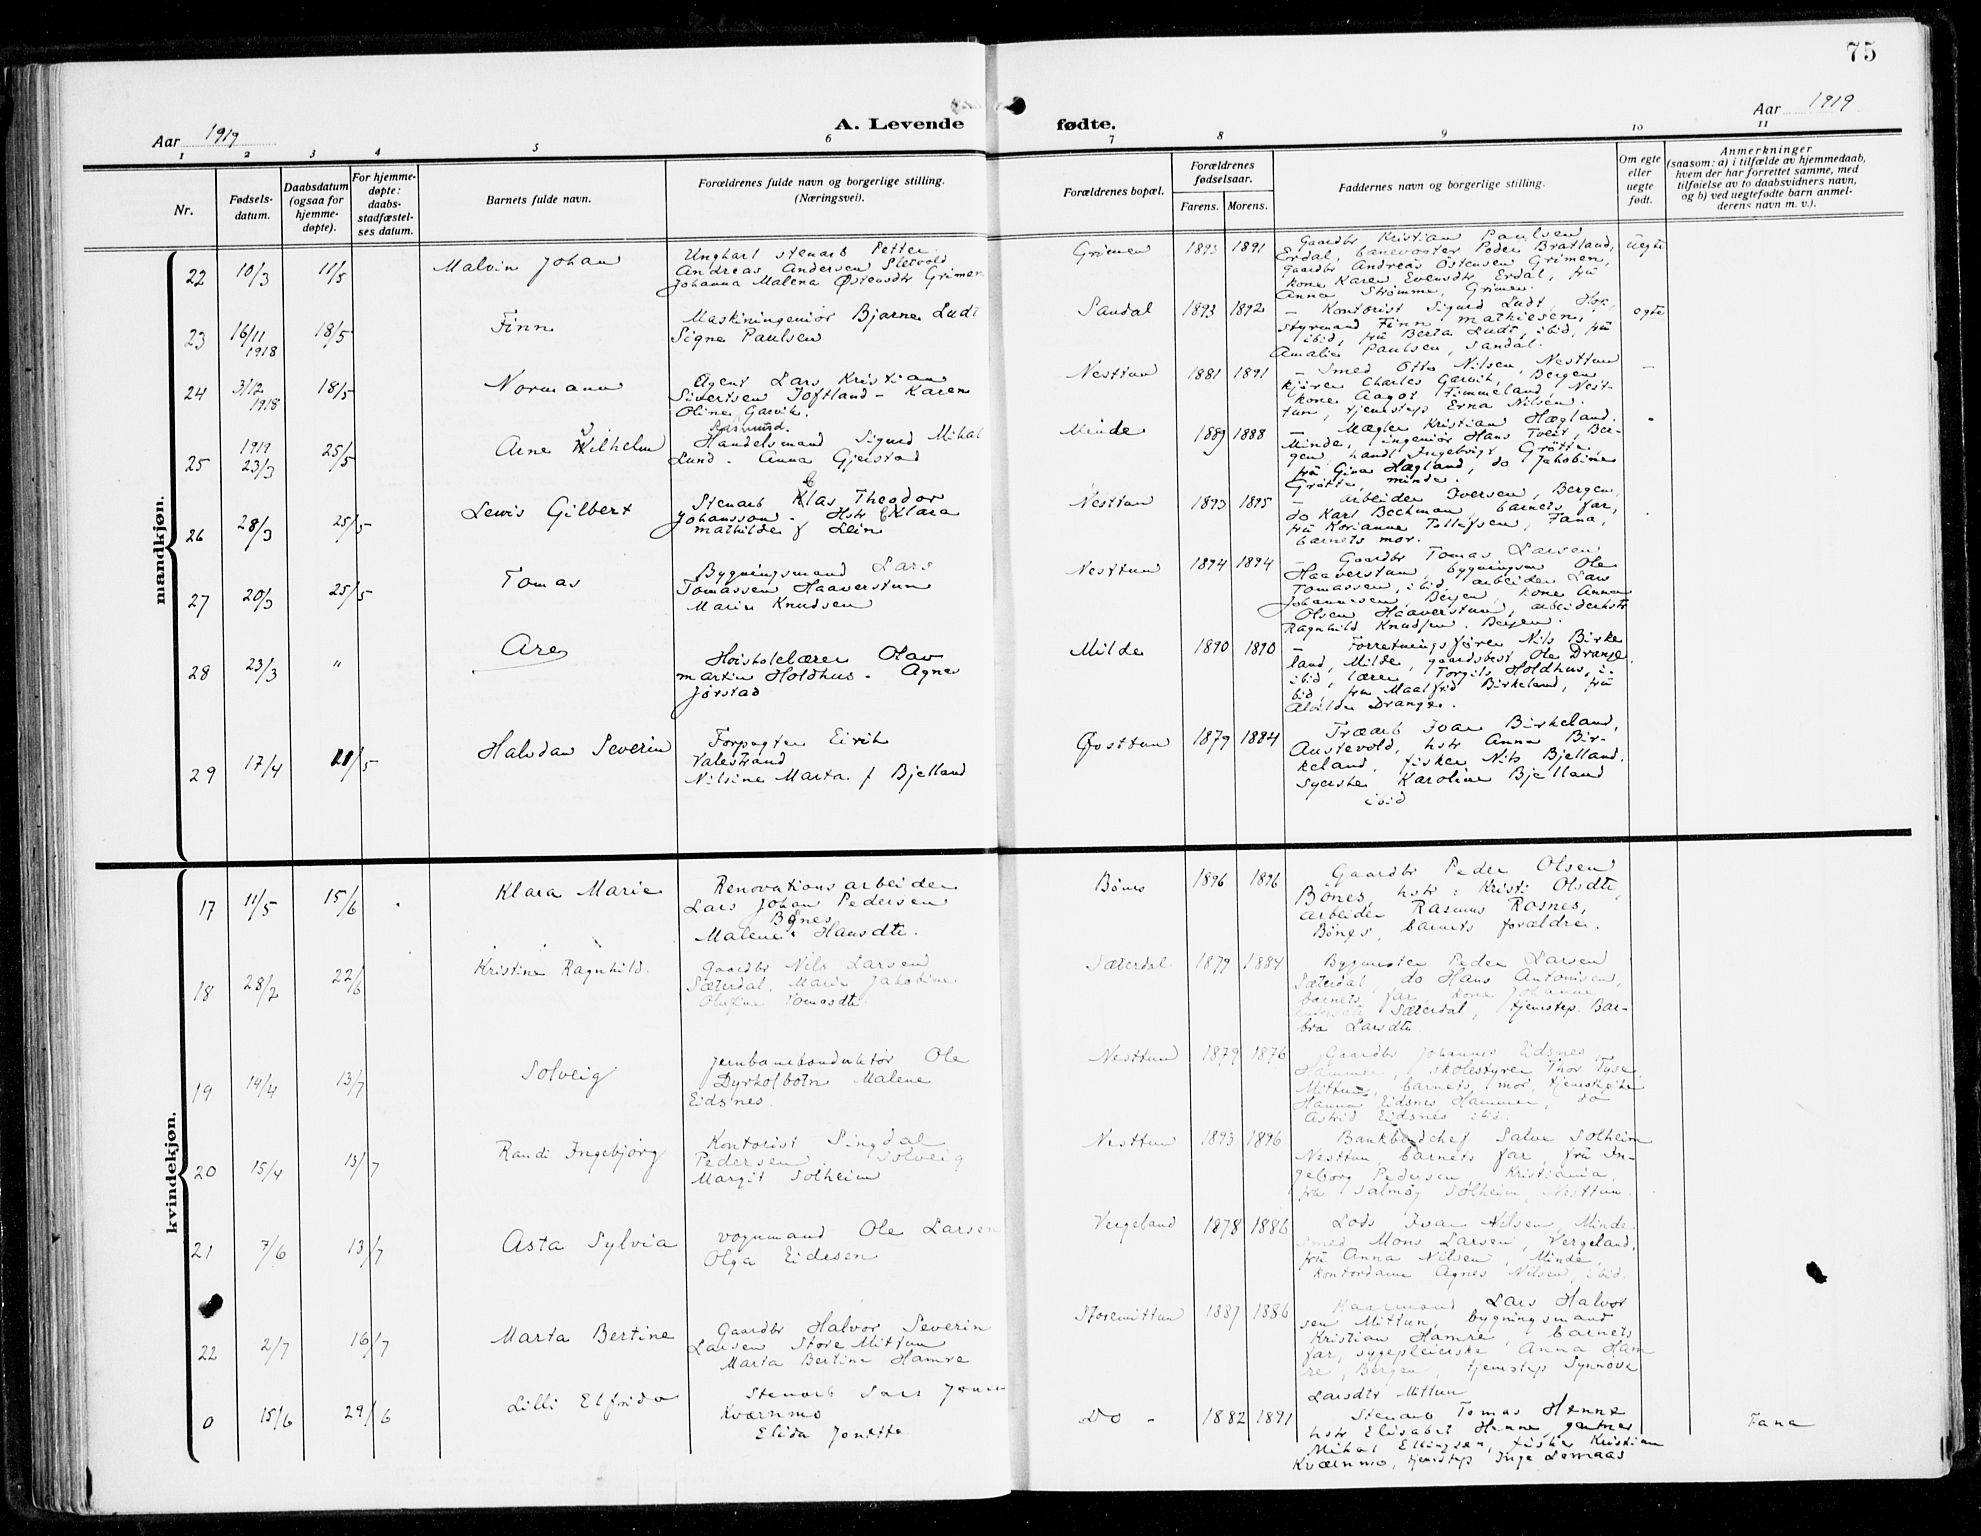 75
Aar 1919
A. Levende fødte.
Aar 1919
1 2 3 4 5 6 7 8 9 10 11
Nr.
Fødsels-
datum.
Daabsdatum
(ogsaa for
hjemme-
døpte).
For hjemme-
døpte:
daabs-
stadfæstel-
ses datum.
Barnets fulde navn.
Forældrenes fulde navn og borgerlige stilling.
(Næringsvei).
Forældrenes bopæl.
Forældrenes
fødselsaar.
Farens. Morens.
Faddernes navn og borgerlige stilling.
Om egte
eller
uegte
født.
Anmerkninger
(saasom: a) i tilfælde av hjemmedaab,
hvem der har forrettet samme, med
tilføielse av to daabsvidners navn,
og b) ved uegtefødte barn anmel-
derens navn m. v.).
mandkjøn.
22 10/3 11/5 Malvin Johan
Ungkarl stenarb Petter
Andreas Andersen Sletvold
Johanna Malena Østensdtr Grimen
Grimen 1893 1891
Gaardbr Kristian Paulsen
Erdal, banevogter Peder Bratland,
gaardbr Andreas Østensen Grimen,
kone Karen Evensdtr Erdal, frü
Anna Strømme, Grimen.
uegte
23 16/11 1918 18/5 Finn
Maskiningeniør Bjarne Ludt
Signe Paulsen
Sandal 1893 1892
– Kontorist Sigurd Ludt,
styrmand Finn Mathiesen,
ibid, frü Berta Ludt, ibid, frü
Amalie Paulsen, Sandal.
egte
24 3/12 1918 18/5 Normann
Agent Lars Kristian
Sivertsen Toftland – Karen
Oline Garvik.
Nesttun 1881 1891
– Smed Otto Nilsen, Nesttun
kjören Charles Garvik, Bergen
kone Aagot Timmeland, Nest-
tun, tjenestep Erna Nilsen.
–
25 1919 23/3 25/5 Arne Wilhelm
Rasmus.
Handelsmand Sigurd Mikal
Lund – Anna Gjerstad
Minde 1889 1888
– Mægler Kristian Hægland.
Minde, ingeniør Hans Tveit, Ber-
gen, handl Ingebrigt Grötte,
frü Gina Hægland, do Jakobine
Grötte, Minde.
26 28/3 25/5 Lewis Gilbert
Stenarb Klas Theodor
Johansson – Hstr Klara
Mathilde f Lein
Nesttun 1893 1895
– arbeider Iversen, Bergen,
do Karl Beckman, barnets far,
frü Korianne Tollefsen, Fana,
barnets mor.
27 20/3 25/5 Tomas
Bygningsmand Lars
Tomassen Haaverstun
Marie Knudsen
Nesttun 1894 1894
– Gaardbr Tomas Larsen
Haaverstun bygningsm Ole
Tomassen, ibid, arbeider Lars
Johannesen Bergen, kone Anna
Olsen Haaverstun, arbeiderhstr
Ragnhild Knudsen. Bergen.
28 23/3 " Are
Høiskolelærer Olav
Martin Holdhus – Agnes
Jørstad
Milde 1890 1890
– Forretningsfører Nils Birke
land, Milde, gaardsbest Ole Drange
ibid, lærer Torgils Holdhus, i-
bid, frü Maalfrid Birkeland, frü
Alvilde Drange.
29 17/4 11/5 Halvdan Severin
Forpagter Eirik
Valestrand
Nilsine Marta f Bjelland
Øvsttun 1879 1884
Træarb Ivar Birkeland,
Austevold, hstr Anna Bir-
keland, fisker Nils Bjelland.
syerske Karoline Bjelland
ibid
kvindekjøn.
17 11/5 15/6 Klara Marie
Renovationsarbeider
Lars Johan Pedersen
Bønes
Malene Hansdtr.
Bönes 1896 1896
Gaardbr Peder Olsen
Bönes, hstr: Kristi Olsdtr,
arbeider Rasmus Rosnes,
Bönes, barnets forældre.
18 28/2 22/6 Kristine Ragnhild.
Gaardbr Nils Larsen
Sæterdal. Marie Jakobine
Olufine Tomasdtr.
Sæterdal 1879 1884
Bygmester Peder Larsen
Sæterdal, do Hans Antonisen,
barnets far, kone Johanne
Sæterdal, tjenestep. Bar-
bra Larsdtr.
19 14/4 13/7 Solveig
Jernbanekonduktör Ole
Dyrkolbotn Malene
Eidsnes.
Nesttun 1879 1876
Gaardbr Johannes Eidsnes
Hammer, skolestyrer Thor Tyse
Mittun, barnets mor, tjenestepike
Hanna Eidsnes Hammer, do
Astrid Eidsnes ibid.
20 15/4 13/7 Randi Ingebjörg
Kontorist Singdal
Pedersen Solveig
Margit Solheim
Nesttun 1893 1896
Bankbudchef Salve Solheim
Nesttun, barnets far, frü In-
geborg Pedersen, Kristiania,
frü Salmøg Solheim, Nesttun.
21 7/6 13/7 Asta Sylvia
vognmand Ole Larsen
Olga Eidesen
Vergeland 1878 1886
Lods Ivar Nilsen, Minde
smed Mons Larsen, Vergeland,
frü Anna Nilsen, Minde,
kontordame Agnes Nilsen, ibid.
22 2/7 16/7 Marta Bertine
Gaardbr Halvor Severin
Larsen Store Mittun
Marta Bertine Hamre
Storemittun 1887 1886
Lars Halvor
sen Mittun, bygningsmand
Kristian Hamre, barnets
far, sygepleierske Anna Ham
re, Bergen, tjenestep Synnøve
Larsdtr Mittun
0 15/6 29/6 Lilli Elfrida
Stenarb Lars
Kværnmo
Elida Jonette
Do – 1882 1891
Stenarb Tomas Henne
hstr Elisabet Henne, gartner
Mikal Ellingsen, fisker Kristian
Kværnmo, tjenestep Inga
Fana